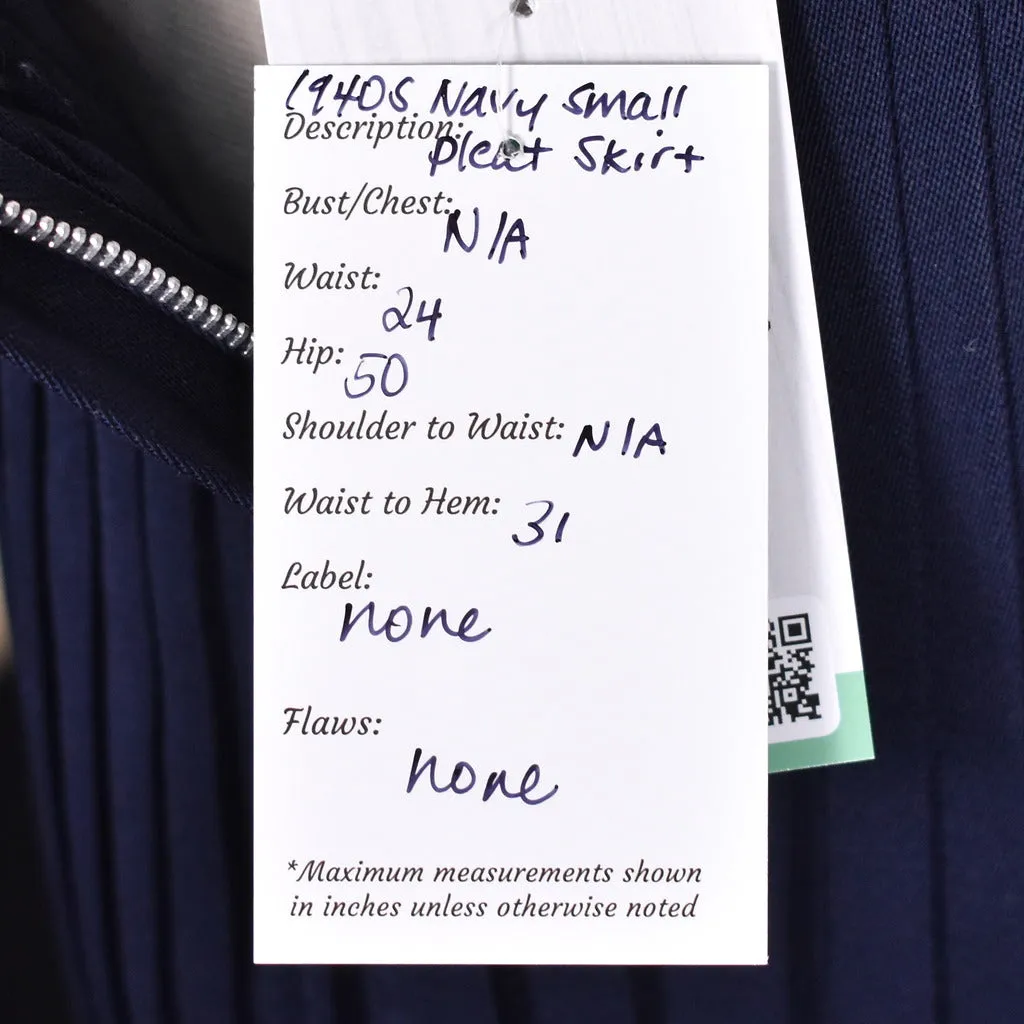 1940s Navy Small
Description: Pleat Skirt
Bust/Chest: N/A
Waist: 24
Hip: 50
Shoulder to Waist: N/A
Waist to Hem: 31
Label:
none
Flaws:
none
*Maximum measurements shown
in inches unless otherwise noted